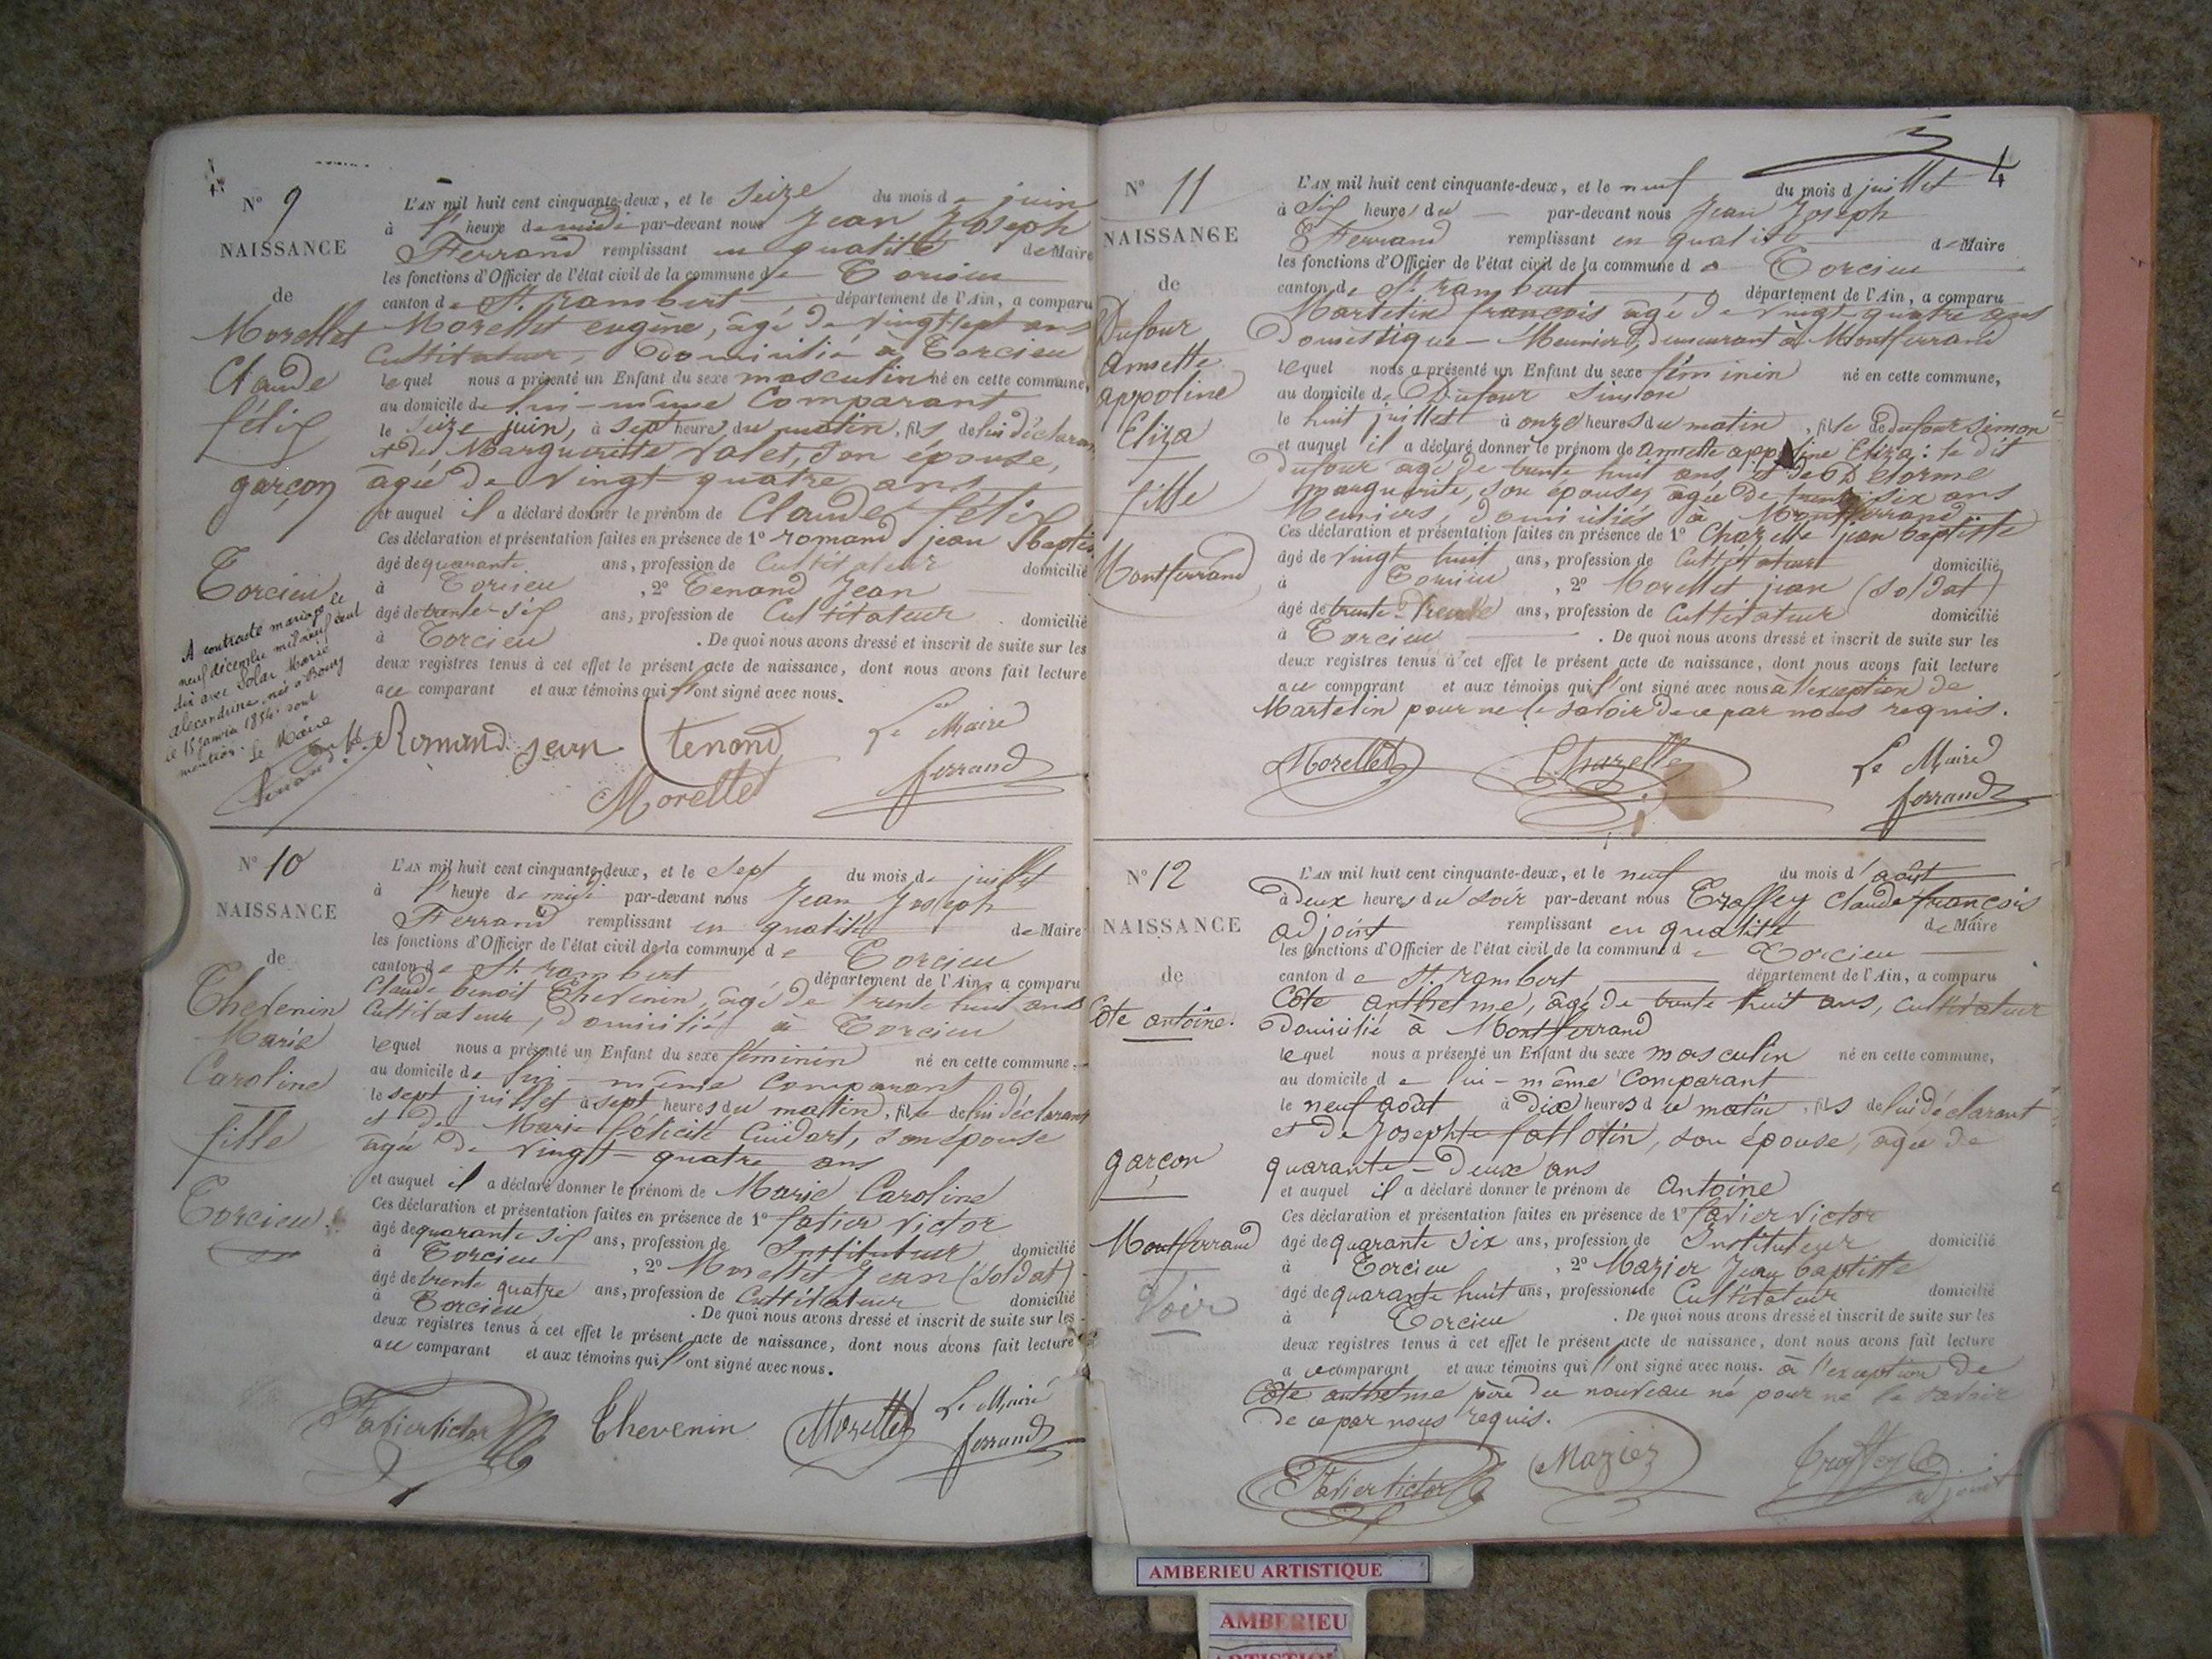 Nº 9
NAISSANCE
de
Morellet
Claude
félix
garçon
Torcieu
A contracté mariage le
neuf décembre mil neuf cent
dix avec Solar Marie
alexandrine née à Bourg
le 15 janvier 1854. dont
mention. Le Maire
L'AN mil huit cent cinquante-deux, et le seize du mois de juin
à l' heure de midi par-devant nous Jean Joseph
Ferrand remplissant en qualité de Maire
les fonctions d'Officier de l'état civil de la commune de Torcieu
canton de St. rambert département de l'Ain, a comparu
Morellet eugène, âgé de vingt-sept ans
Cultivateur, domicilié à Torcieu
lequel nous a présenté un Enfant du sexe masculin né en cette commune,
au domicile de lui-même Comparant
le seize juin, à sept heures du matin, fils de lui déclarant
et de Marguerite Valet, son épouse,
âgée de vingt-quatre ans
et auquel il a déclaré donner le prénom de Claude félix
Ces déclaration et présentation faites en présence de 1º romand jean Bapte
âgé de quarante ans, profession de Cultivateur domicilié
à Torcieu, 2º Tenand Jean
âgé de trente-six ans, profession de Cultivateur domicilié
à Torcieu . De quoi nous avons dressé et inscrit de suite sur les
deux registres tenus à cet effet le présent acte de naissance, dont nous avons fait lecture
au comparant et aux témoins qui l'ont signé avec nous.
Romand jean tenand Le Maire
Morellet ferrand
Nº 10
NAISSANCE
de
Thevenin
Marie
Caroline
fille
Torcieu
L'AN mil huit cent cinquante-deux, et le sept du mois de juillet
à l' heure de midi par-devant nous Jean Joseph
Ferrand remplissant en qualité de Maire
les fonctions d'Officier de l'état civil de la commune de Torcieu
canton de St. rambert département de l'Ain, a comparu
Claude benoit Thevenin, âgé de trente huit ans
Cultivateur, domicilié à Torcieu
lequel nous a présenté un Enfant du sexe féminin né en cette commune,
au domicile de lui-même Comparant
le sept juillet à sept heures du matin, fille de lui déclarant
et de Marie félicité Cuidart, son épouse
âgée de vingt-quatre ans
et auquel il a déclaré donner le prénom de Marie Caroline
Ces déclaration et présentation faites en présence de 1º favier Victor
âgé de quarante six ans, profession de Instituteur domicilié
à Torcieu, 2º Morellet Jean (soldat)
âgé de trente quatre ans, profession de Cultivateur domicilié
à Torcieu . De quoi nous avons dressé et inscrit de suite sur les
deux registres tenus à cet effet le présent acte de naissance, dont nous avons fait lecture
au comparant et aux témoins qui l'ont signé avec nous.
Favier Victor Thevenin Morellet Le Maire
ferrand
4
Nº 11
NAISSANCE
de
Dufour
annette
appoline
Eliza
fille
Montferrand
L'AN mil huit cent cinquante-deux, et le neuf du mois d juillet
à six heures du par-devant nous Jean Joseph
Ferrand remplissant en qualité de Maire
les fonctions d'Officier de l'état civil de la commune de Torcieu
canton de St. rambert département de l'Ain, a comparu
Martelin françois âgé de vingt-quatre ans
domestique-Meunier, demeurant à Montferrand
lequel nous a présenté un Enfant du sexe féminin né en cette commune,
au domicile de Dufour Simon
le huit juillet à onze heures du matin, fille de dufour simon
et auquel il a déclaré donner le prénom de annette appoline Eliza: le dit
dufour âgé de trente huit ans, et de Delorme
marguerite, son épouse, âgée de trente six ans
Meuniers, domiciliés à Montferrand
Ces déclaration et présentation faites en présence de 1º Chazelle jean baptiste
âgé de vingt huit ans, profession de Cultivateur domicilié
à Torcieu, 2º Morellet jean (soldat)
âgé de trente ans, profession de Cultivateur domicilié
à Torcieu . De quoi nous avons dressé et inscrit de suite sur les
deux registres tenus à cet effet le présent acte de naissance, dont nous avons fait lecture
au comparant et aux témoins qui l'ont signé avec nous à l'exception de
Martelin pour ne le savoir de ce par nous requis.
Morellet Chazelle Le Maire
ferrand
Nº 12
NAISSANCE
de
Côte antoine.
garçon
Montferrand
Voir
L'AN mil huit cent cinquante-deux, et le neuf du mois d'août
à deux heures du soir par-devant nous Troffey Claude françois
adjoint remplissant en qualité de Maire
les fonctions d'Officier de l'état civil de la commune de Torcieu
canton de St. rambert département de l'Ain, a comparu
Côte anthelme, âgé de trente huit ans, cultivateur
domicilié à Montferrand
lequel nous a présenté un Enfant du sexe masculin né en cette commune,
au domicile de lui-même Comparant
le neuf août à dix heures du matin, fils de lui déclarant
et de Josephte fallotin, son épouse, âgée de
quarante-deux ans
et auquel il a déclaré donner le prénom de antoine
Ces déclaration et présentation faites en présence de 1º favier Victor
âgé de quarante six ans, profession de Instituteur domicilié
à Torcieu, 2º Mazier Jean baptiste
âgé de quarante huit ans, profession de Cultivateur domicilié
à Torcieu . De quoi nous avons dressé et inscrit de suite sur les
deux registres tenus à cet effet le présent acte de naissance, dont nous avons fait lecture
au comparant et aux témoins qui l'ont signé avec nous. à l'exception de
Côte anthelme père du nouveau né pour ne le savoir
de ce par nous requis.
Favier Victor Mazier Troffey
adjoint
AMBERIEU ARTISTIQUE
AMBERIEU
ARTISTIQUE